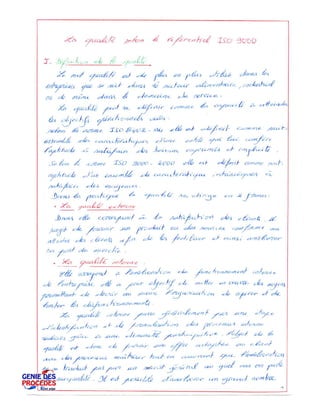 La qualité selon le référentiel ISO 9000
I. Définition de la qualité
Le mot qualité est de plus en plus utilisé dans les
entreprises que ce soit dans le secteur alimentaire, industriel
ou de même dans le domaine de service.
La qualité peut se définir comme la capacité à atteindre
les objectifs opérationnels visés.
selon la norme ISO 8402, elle est définit comme suit:
ensemble des caractéristiques d'une entité qui lui confère
l'aptitude à satisfaire des besoins exprimés et implicite.
Selon la norme ISO 9000: 2000 elle est définit comme suit:
aptitude d'un ensemble de caractéristiques intrinsèques à
satisfaire des exigences.
Dans la pratique la qualité se
• La qualité externe
Dans elle correspond à la satisfaction des clients. Il
s'agit de fournir un produit ou des services conforme aux
attentes des clients afin de les fidéliser et ainsi améliorer
sa part de marché.
• La qualité interne:
Elle correspond à l'amélioration du fonctionnement interne
de l'entreprise elle a pour objectif de mettre en œuvre des moyens
permettant de décrire au mieux l'organisation de repérer et de
limiter les dysfonctionnements.
La qualité interne passe généralement par une étape
d'identification et de formalisation des processus internes
réalisés grâce à une démarche participative. l'objet de la
qualité est donc de fournir une offre adaptée au client
avec des processus maîtrisés tout en que l'amélioration
ne traduit pas par un
Il est possible d'améliorer un grand nombre
GENIE DES
PROCEDES